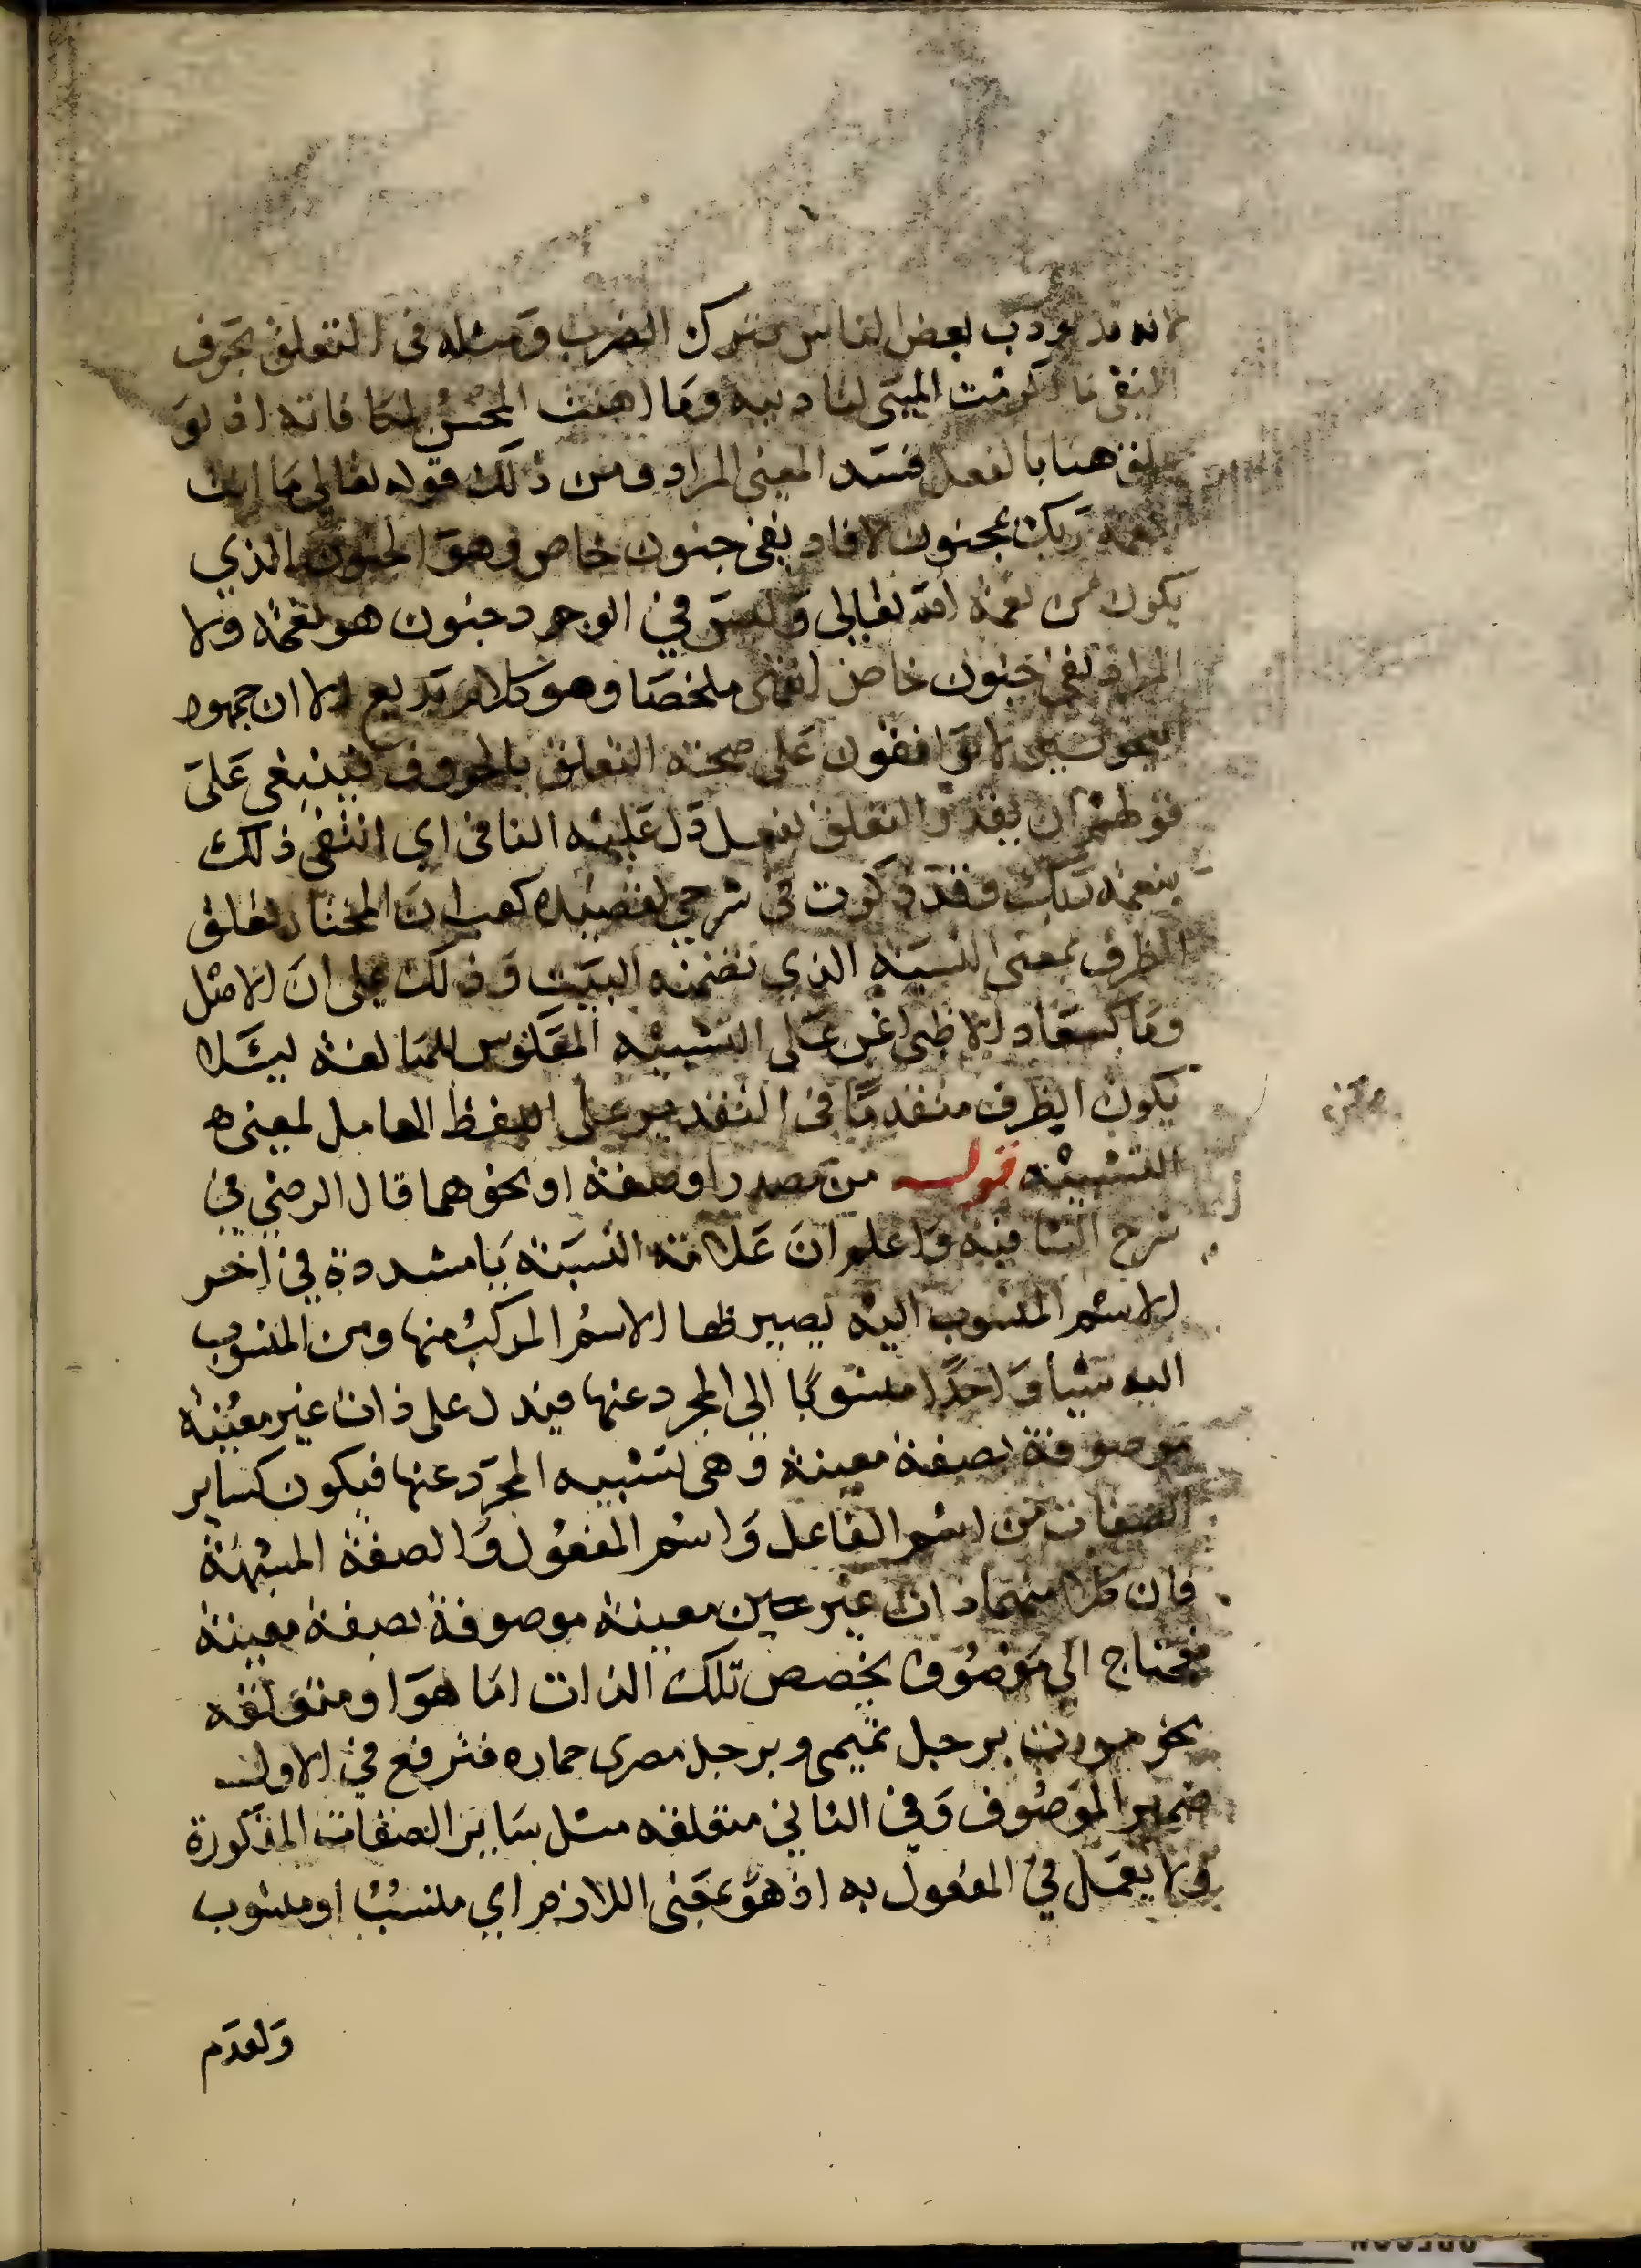 لانه قد يودب بعض الناس بترك الضرب ومثله في التعلق بحرف
النفي ما اكرمت المسي لتاديبه وما اهنت المحسن لمكافاته اذ لو
علق هنا بالفعل فسد المعنى المراد ومن ذلك قوله تعالى ما انت
بنعمة ربك بمجنون لافاد نفي جنون خاص وهو الجنون الذي
يكون من نعمة الله تعالى وليس في الوجود جنون هو نعمة ولا
المراد نفي جنون خاص انتهى ملخصا وهو كلام بديع الا ان جمهور
النحويين لا يوافقون على صحة التعلق بالحروف فينبغي على
قولهم ان يقدر التعلق بفعل دل عليه النافي اي انتفى ذلك
بنعمة ربك وقد ذكرت في شرحي لقصيدة كعب ان المختار تعلق
الظرف بمعنى التشبيه الذي تضمنه البيت وذلك على ان الاصل
وما كسعاد الا ظبي اغن على التشبيه المعكوس للمبالغة ليلا
يكون الظرف متقدما في التقدير على اللفظ الحامل لمعنى
التشبيه قوله من مصدر او صفة او نحوهما قال الرضي في
شرح الشافية واعلم ان علامة النسبة يا مشددة في اخر
الاسم المنسوب اليه يصير لها الاسم المركب منها ومن المنسوب
اليه شيا واحدا منسوبا الى المجرد عنها فيدل على ذات غير معينة
موصوفة بصفة معينة وهي تشبيه المجرد عنها فيكون كساير
الصفات من اسم الفاعل واسم المفعول والصفة المشبهة
فان كلا منهما ذات غير معينة موصوفة بصفة معينة
فيحتاج الى موصوف يخصص تلك الذات اما هو او متعلقه
نحو مررت برجل تميمي وبرجل مصرى حماره فترفع في الاول
ضمير الموصوف وفي الثاني متعلقه مثل ساير الصفات المذكورة
ولا يعمل في المفعول به اذ هو بمعنى اللازم اي منتسب او منسوب
ولعدم